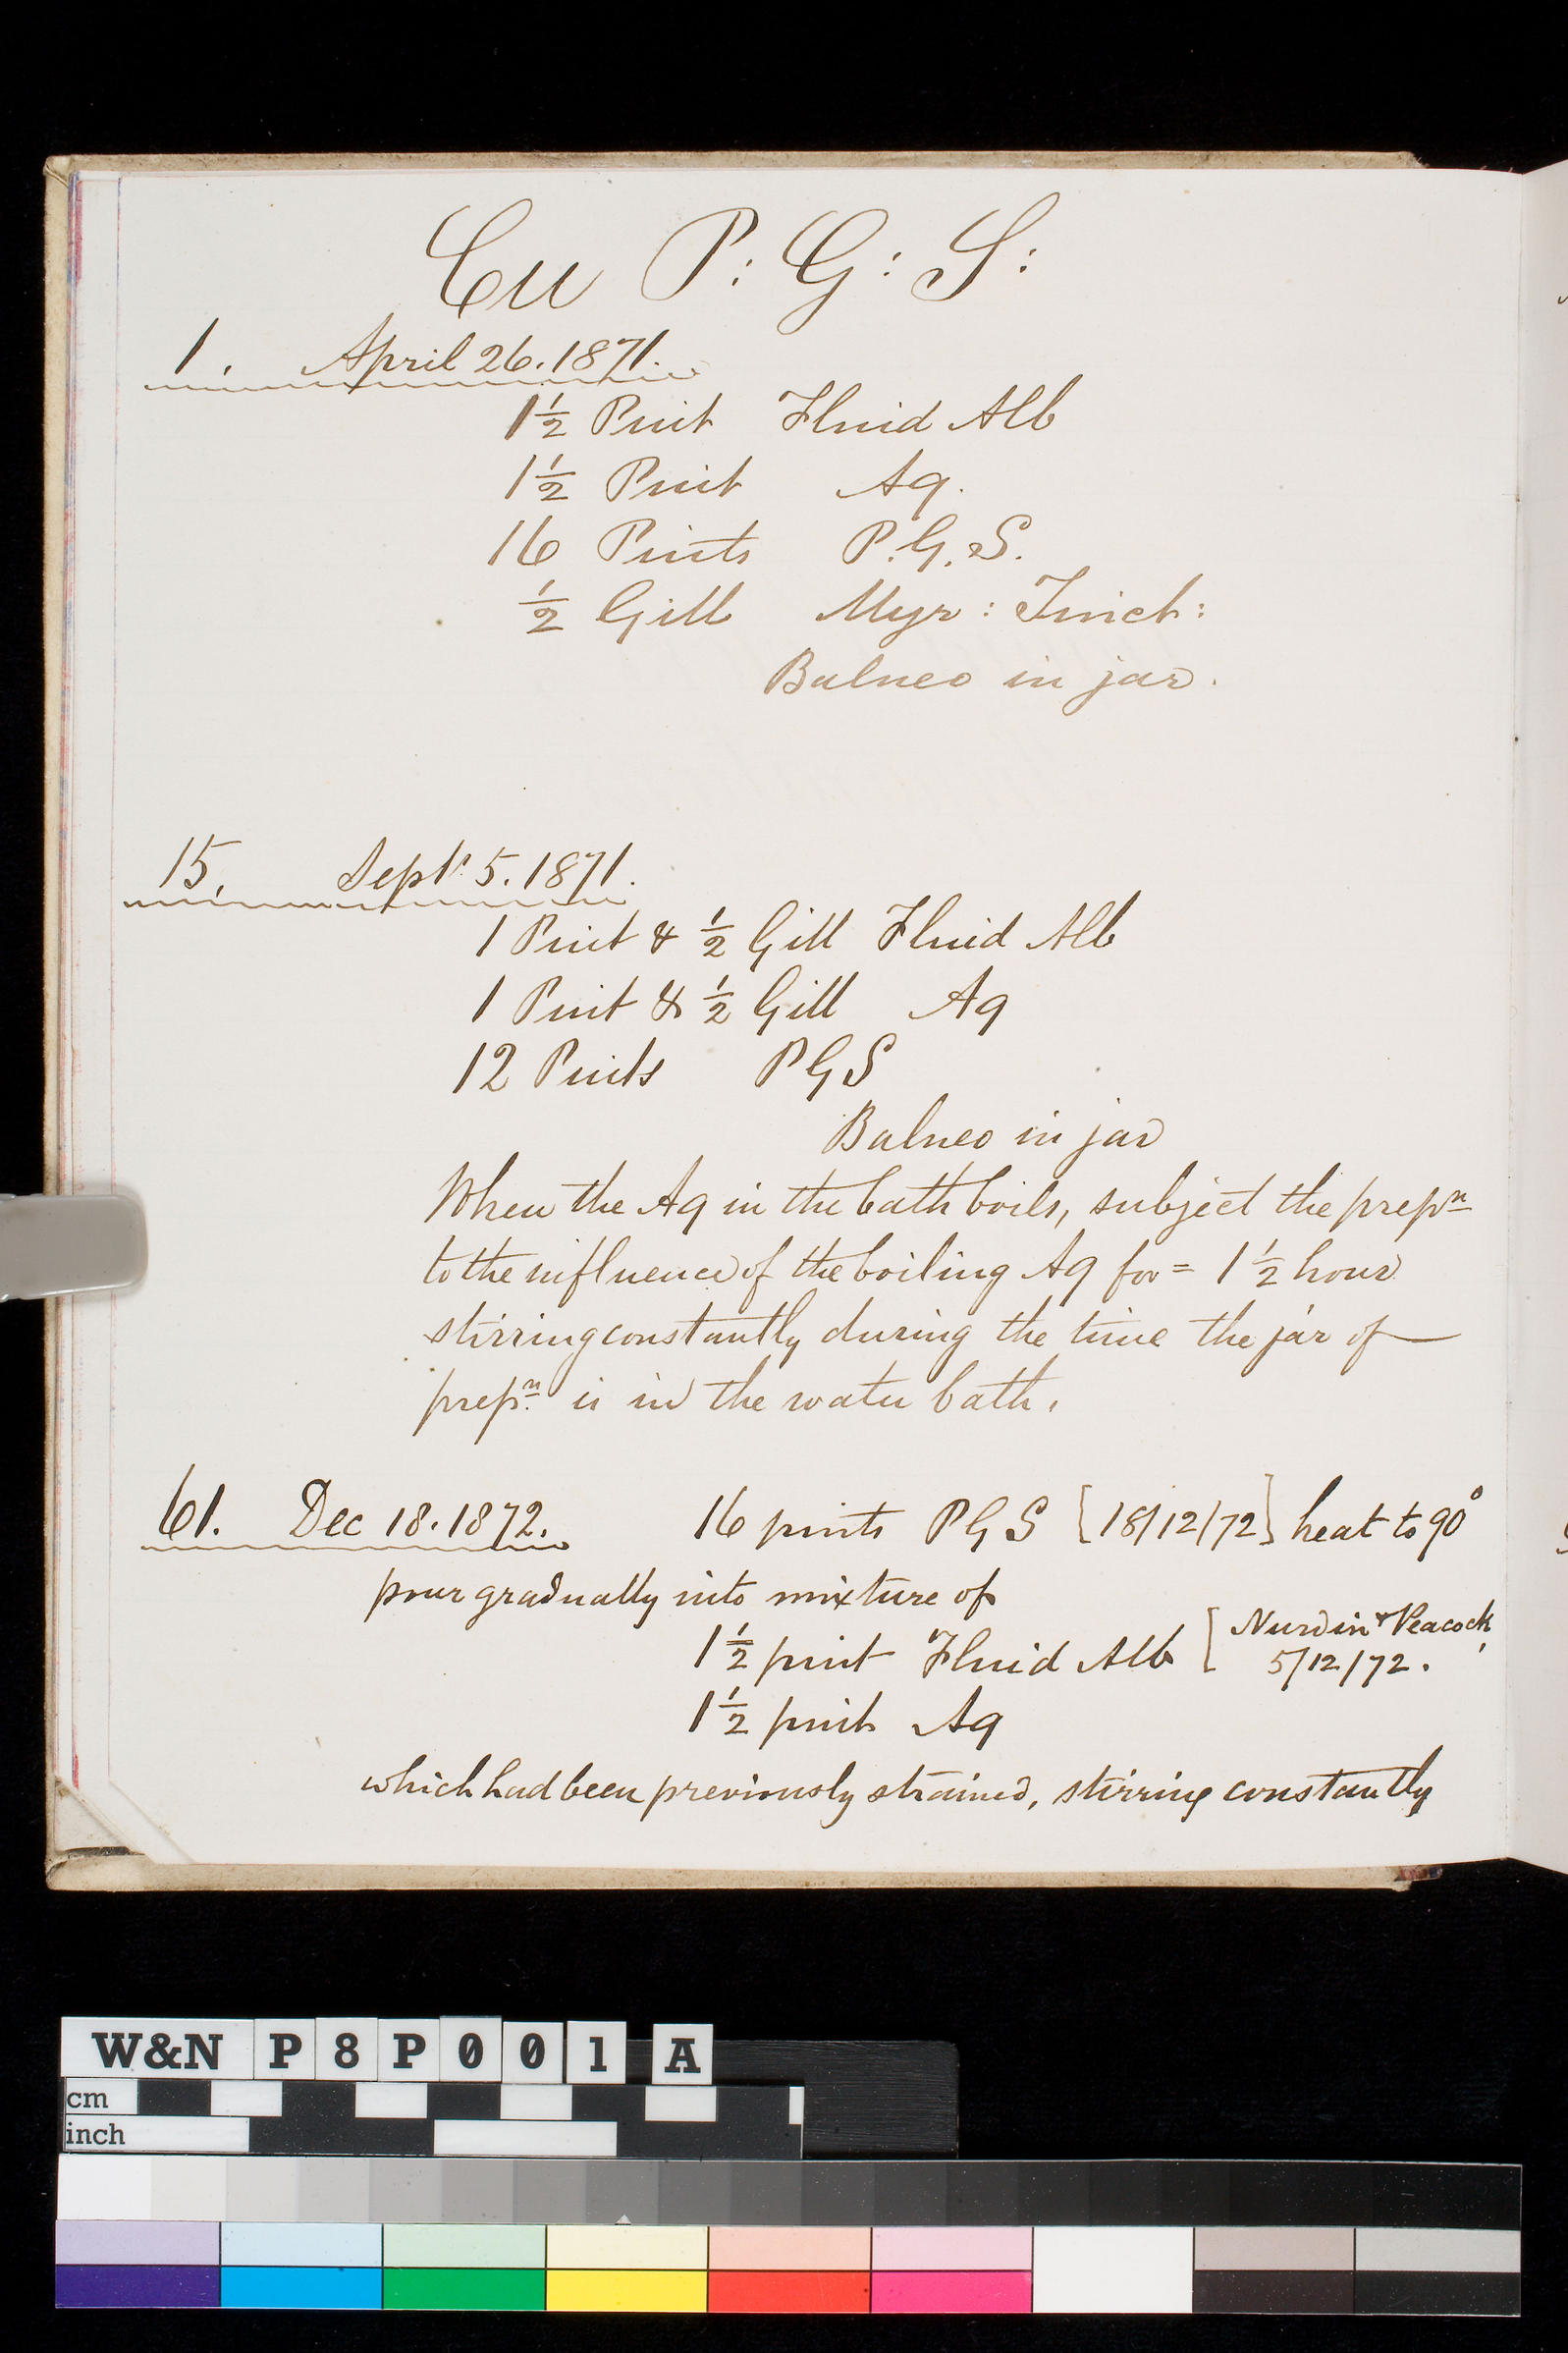 Cu P: G: S:
1. April 26. 1871.
1½ Pint Fluid Alb
1½ Pint Aq.
16 Pints P.G.S.
½ Gill Myr: Tinct:
Balneo in jar.
15. Sept. 5. 1871.
1 Pint & ½ Gill Fluid Alb
1 Pint & ½ Gill Aq
12 Pints PGS
Balneo in jar
When the Aq in the bath boils, subject the prepⁿ
to the influence of the boiling Aq for = 1½ hour
stirring constantly during the time the jar of
prepⁿ. is in the water bath.
61. Dec 18. 1872. 16 pints PGS [18/12/72] heat to 90°
pour gradually into mixture of
1½ pint Fluid Alb [Nurdin & Peacock,
5/12/72.
1½ pint Aq
which had been previously strained, stirring constantly
W&N P8P001 A
cm
inch